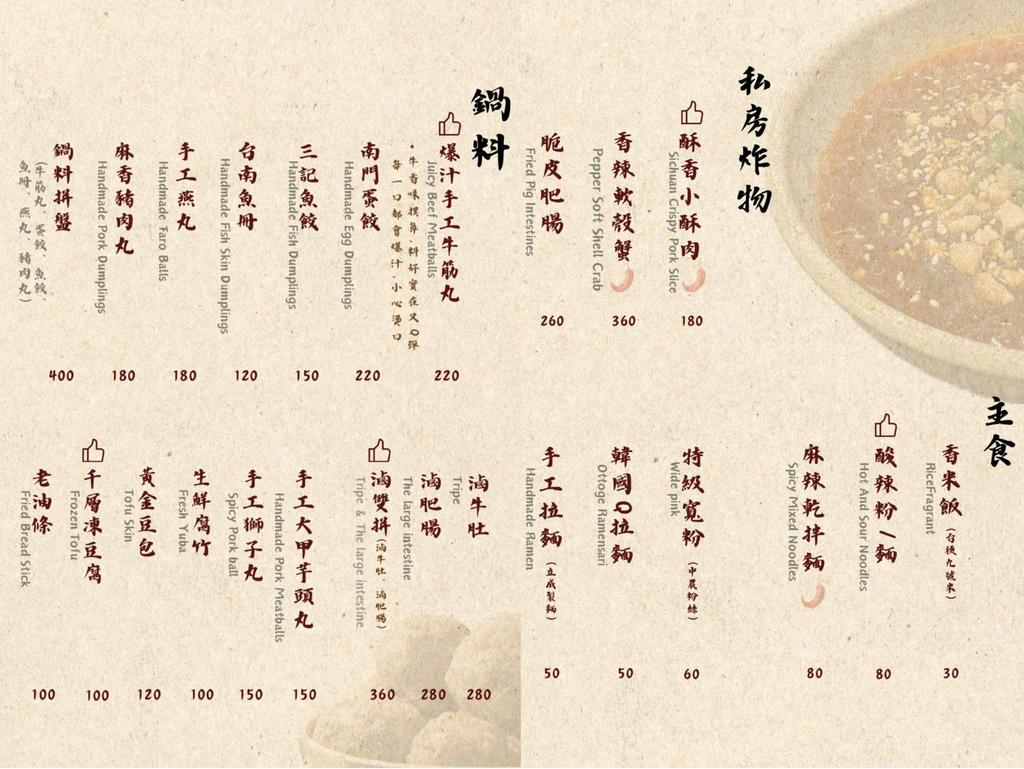 私房炸物
酥香小酥肉
Sichuan Crispy Pork Slice
180
香辣軟殼蟹
Pepper Soft Shell Crab
360
脆皮肥腸
Fried Pig Intestines
260
主食
香米飯(台稉九號米)
RiceFragrant
30
酸辣粉/麵
Hot And Sour Noodles
80
麻辣乾拌麵
Spicy Mixed Noodles
80
特級寬粉(中農粉絲)
Wide pink
60
韓國Q拉麵
Ottoge Ramensari
50
手工拉麵(立成製麵)
Handmade Ramen
50
鍋料
爆汁手工牛筋丸
Juicy Beef Meatballs
•牛香味撲鼻.料好實在又Q彈
每一口都會爆汁.小心燙口
220
南門蛋餃
Handmade Egg Dumplings
220
三記魚餃
Handmade Fish Dumplings
150
台南魚冊
Handmade Fish Skin Dumplings
120
手工燕丸
Handmade Faro Balls
180
麻香豬肉丸
Handmade Pork Dumplings
180
鍋料拼盤
(牛筋丸、蛋餃、魚餃、
魚冊、燕丸、豬肉丸)
400
滷牛肚
Tripe
280
滷肥腸
The large intestine
280
滷雙拼(滷牛肚.滷肥腸)
Tripe & The large intestine
360
手工大甲芋頭丸
Handmade Pork Meatballs
150
手工獅子丸
Spicy Pork ball
150
生鮮腐竹
Fresh Yuba
100
黃金豆包
Tofu Skin
120
千層凍豆腐
Frozen Tofu
100
老油條
Fried Bread Stick
100